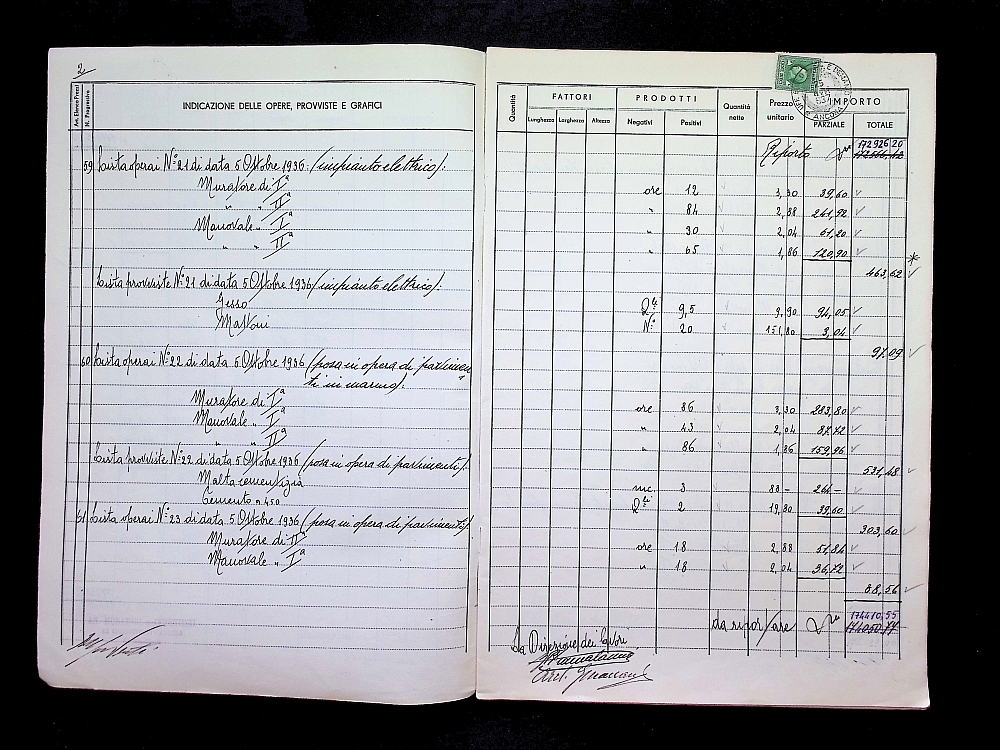 2
Art. Elenco Prezzi
N. Progressivo
INDICAZIONE DELLE OPERE, PROVVISTE E GRAFICI
59 Lista operai N° 21 di data 5 Ottobre 1936 (impianto elettrico):
Muratore di Iª
" " IIª
Manovale " Iª
" " IIª
Lista provviste N° 21 di data 5 Ottobre 1936 (impianto elettrico):
Gesso
Mattoni
60 Lista operai N° 22 di data 5 Ottobre 1936 (posa in opera di pavimen-
ti in marmo):
Muratore di Iª
Manovale " Iª
" " IIª
Lista provviste N° 22 di data 5 Ottobre 1936 (posa in opera di pavimenti):
Malta cementizia
Cemento n 450
61 Lista operai N° 23 di data 5 Ottobre 1936 (posa in opera di pavimenti)
Muratore di IIª
Manovale " Iª
Quantità
FATTORI
Lunghezza Larghezza Altezza
PRODOTTI
Negativi Positivi
Quantità nette
Prezzo unitario
IMPORTO
PARZIALE TOTALE
ANCONA
Riporto 172926 20
ore 12 3,30 39,60
" 84 2,88 241,92
" 30 2,04 61,20
" 65 1,86 120,90
463,62
Q.li 9,5 9,90 94,05
N° 20 151,80 3,04
97,09
ore 86 3,30 283,80
" 43 2,04 87,72
" 86 1,86 159,96
531,48
mc. 3 88 - 264 -
Q.li 2 19,80 39,60
303,60
ore 18 2,88 51,84
" 18 2,04 36,72
88,56
da riportare 174410,55
La Direzione dei Lavori